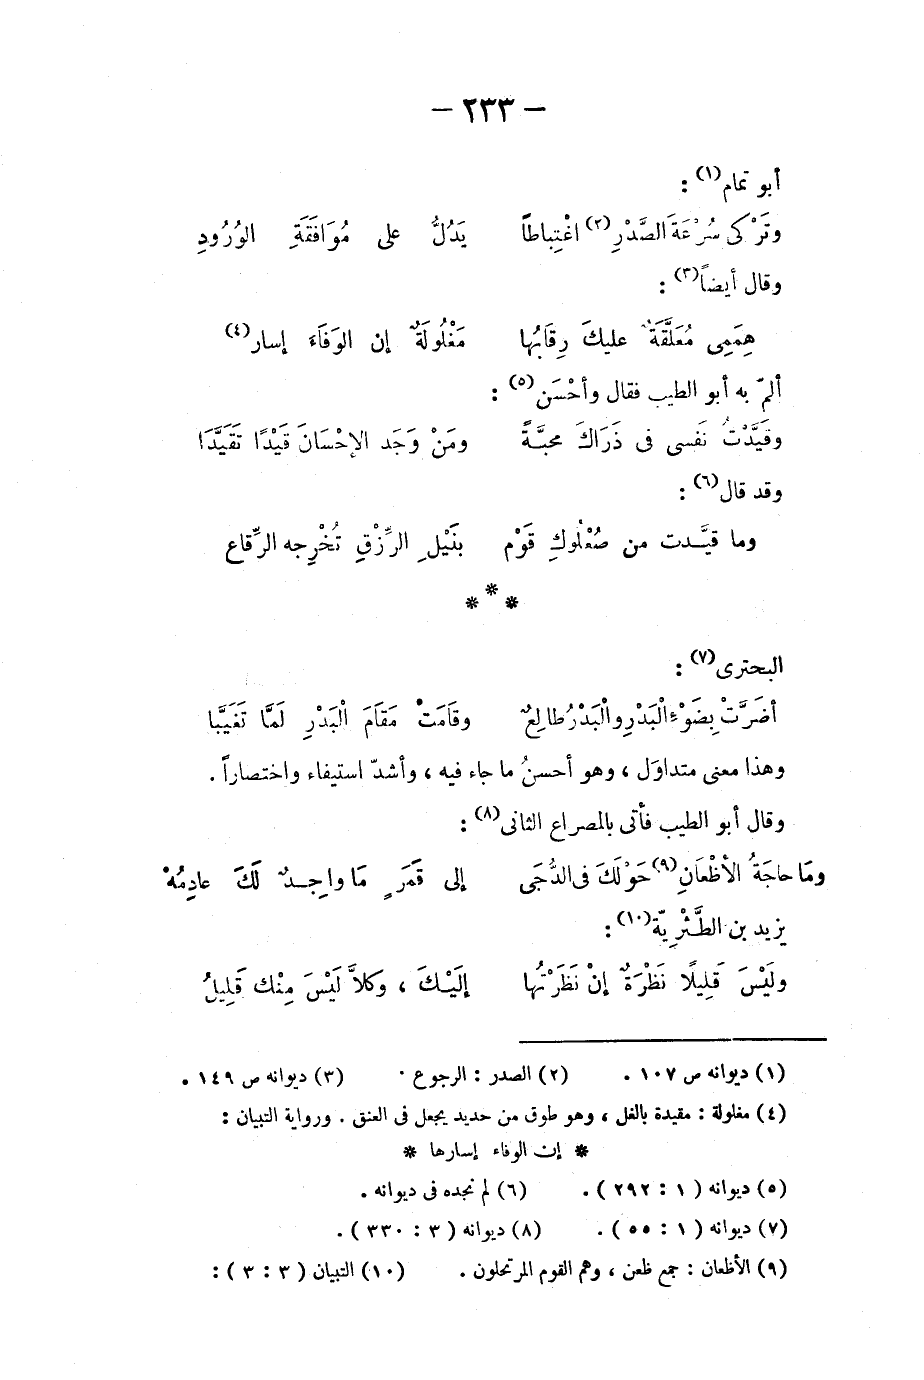 — ٢٣٣ —
أبو تمام(١) :
وتَرْكى سُرْعَةَ الصَّدْرِ(٢) اغْتِباطاً يَدُلُّ على مُوَافَقَةِ الوُرُودِ
وقال أيضاً(٣) :
هِمَمِى مُعَلَّقَةٌ عليكَ رِقَابُها مَغْلُولَةٌ إن الوَفَاءَ إسار(٤)
ألمّ به أبو الطيب فقال وأحْسَن(٥) :
وقَيَّدْتُ نَفسى فى ذَرَاكَ محبَّةً ومَنْ وَجَد الإحْسَانَ قَيْدًا تَقَيَّدَا
وقد قال(٦) :
وما قيَّدت من صُعْلُوكِ قَوْم بنَيْلِ الرِّزْقِ تُخْرِجه الرِّقاع
* * *
البحترى(٧) :
أضَرَّتْ بِضَوْءِ الْبَدْرِ والْبَدْرُ طالِعٌ وقَامَتْ مَقَامَ الْبَدْرِ لَمَّا تَغَيَّبا
وهذا معنى متداوَل ، وهو أحسنُ ما جاء فيه ، وأشدّ استيفاء واختصاراً .
وقال أبو الطيب فأتى بالمصراع الثانى(٨) :
ومَا حاجَةُ الأظْعَانِ(٩) حَوْلَكَ فى الدُّجَى إلى قَمَرٍ مَا واجِدٌ لَكَ عادِمُهْ
يزيد بن الطَّثْرِيّة(١٠) :
ولَيْسَ قَلِيلًا نَظْرَةٌ إنْ نَظَرْتُها إلَيْكَ ، وكَلاَّ لَيْسَ مِنْك قَلِيلُ
(١) ديوانه ص ١٠٧ . (٢) الصدر : الرجوع . (٣) ديوانه ص ١٤٩ .
(٤) مغلولة : مقيدة بالغل ، وهو طوق من حديد يجعل فى العنق . ورواية التبيان :
* إن الوفاء إسارها *
(٥) ديوانه ( ١ : ٢٩٢ ) . (٦) لم نجده فى ديوانه .
(٧) ديوانه ( ١ : ٥٥ ) . (٨) ديوانه ( ٣ : ٣٣٠ ) .
(٩) الأظعان : جمع ظعن ، وهم القوم المرتحلون . (١٠) التبيان ( ٣ : ٣ ) :